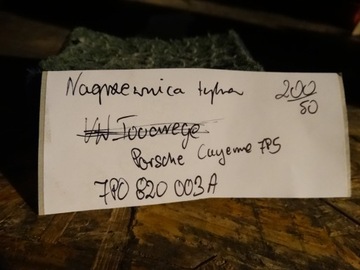 Nagrzewnica tylna
200
50
VW Touarega
Porsche Cayenne 7P5
7P0 820 003A